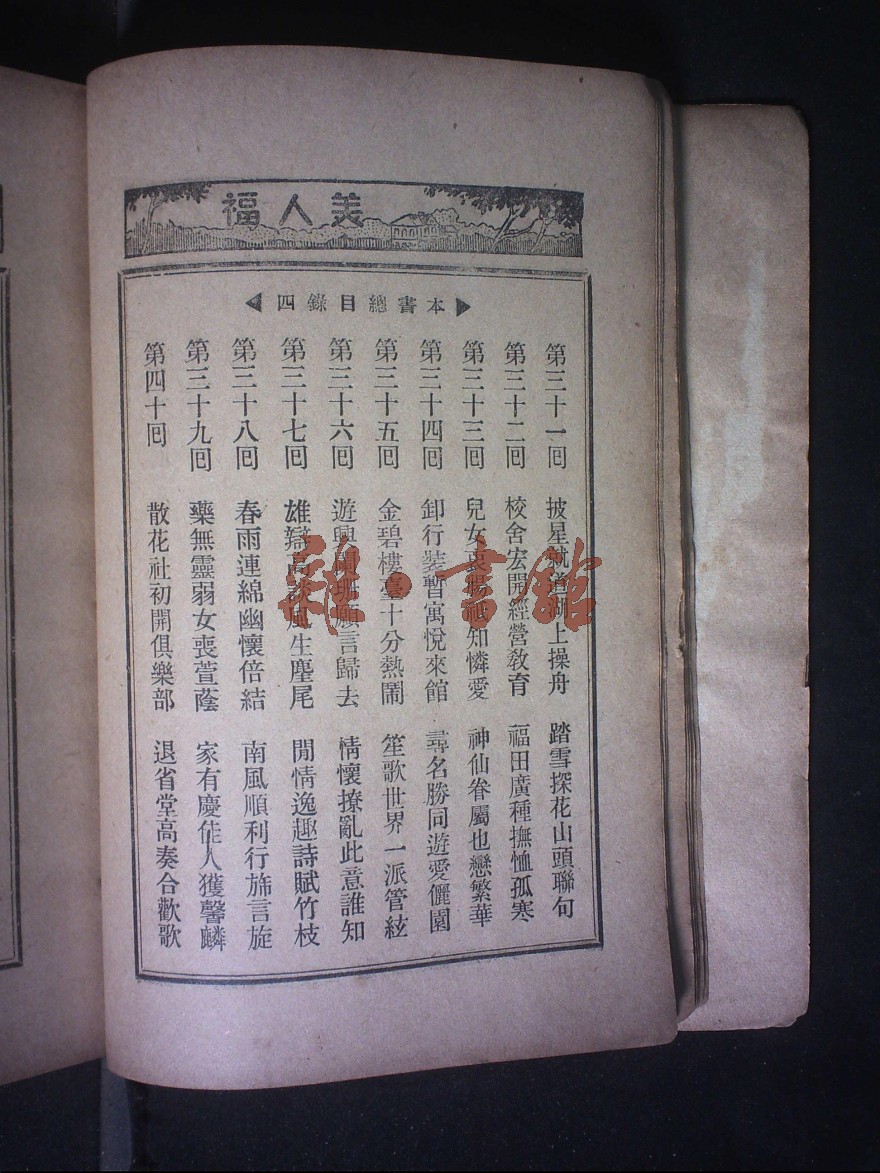 美人福
本書總目錄四
第三十一回 披星就道湖上操舟 踏雪探花山頭聯句
第三十二回 校舍宏開經營教育 福田廣種撫恤孤寒
第三十三回 兒女衷腸祗知憐愛 神仙眷屬也戀繁華
第三十四回 卸行裝暫寓悅來館 尋名勝同遊愛儷園
第三十五回 金碧樓臺十分熱鬧 笙歌世界一派管絃
第三十六回 遊興闌珊願言歸去 情懷撩亂此意誰知
第三十七回 雄辯高談風生麈尾 閒情逸趣詩賦竹枝
第三十八回 春雨連綿幽懷倍結 南風順利行旆言旋
第三十九回 藥無靈弱女喪萱蔭 家有慶佳人獲馨麟
第四十回 散花社初開俱樂部 退省堂高奏合歡歌
雜·書館